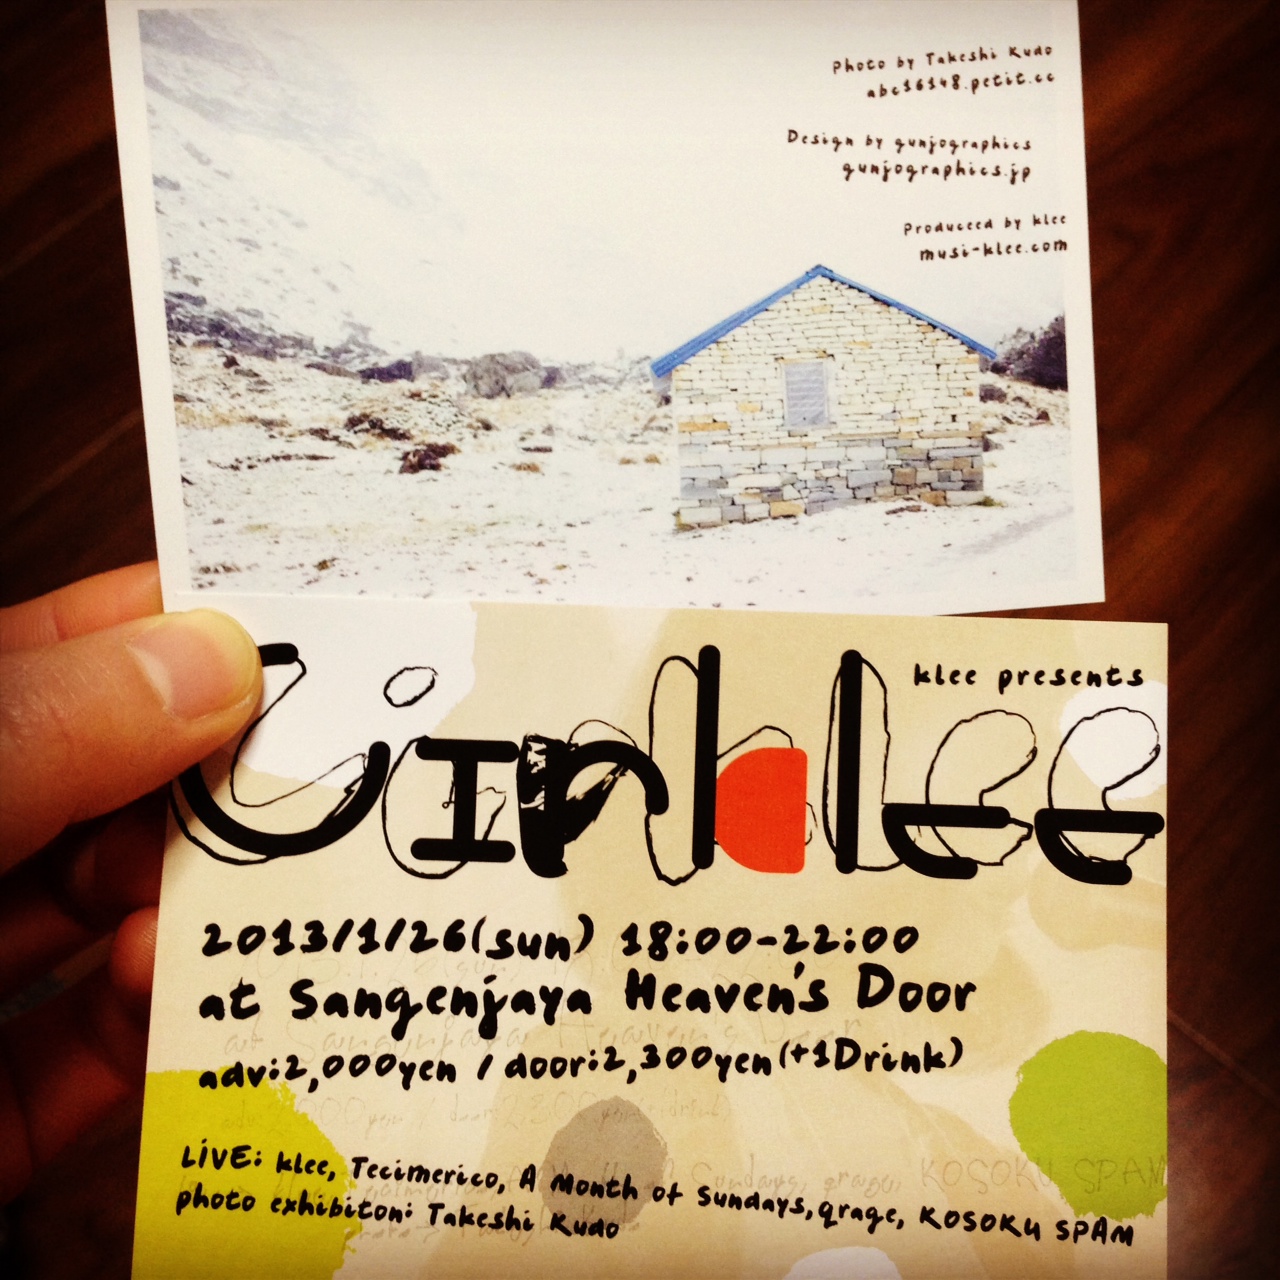 Photo by Takeshi Kudo
abc16148.petit.cc
Design by gunjographics
gunjographics.jp
Produceed by klee
musi-klee.com
klee presents
Cirklee
2013/1/26(sun) 18:00-22:00
at Sangenjaya Heaven's Door
adv:2,000yen / door:2,300yen(+1Drink)
LiVE: klee, Tecimerico, A Month of Sundays, qrage, KOSOKU SPAM
photo exhibiton: Takeshi Kudo